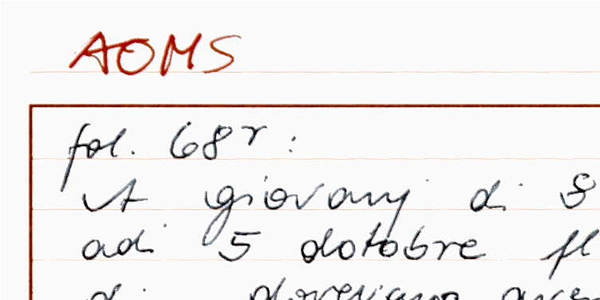 AOMS
fol. 68r:
A giovanj di S
adi 5 dotobre fl
di